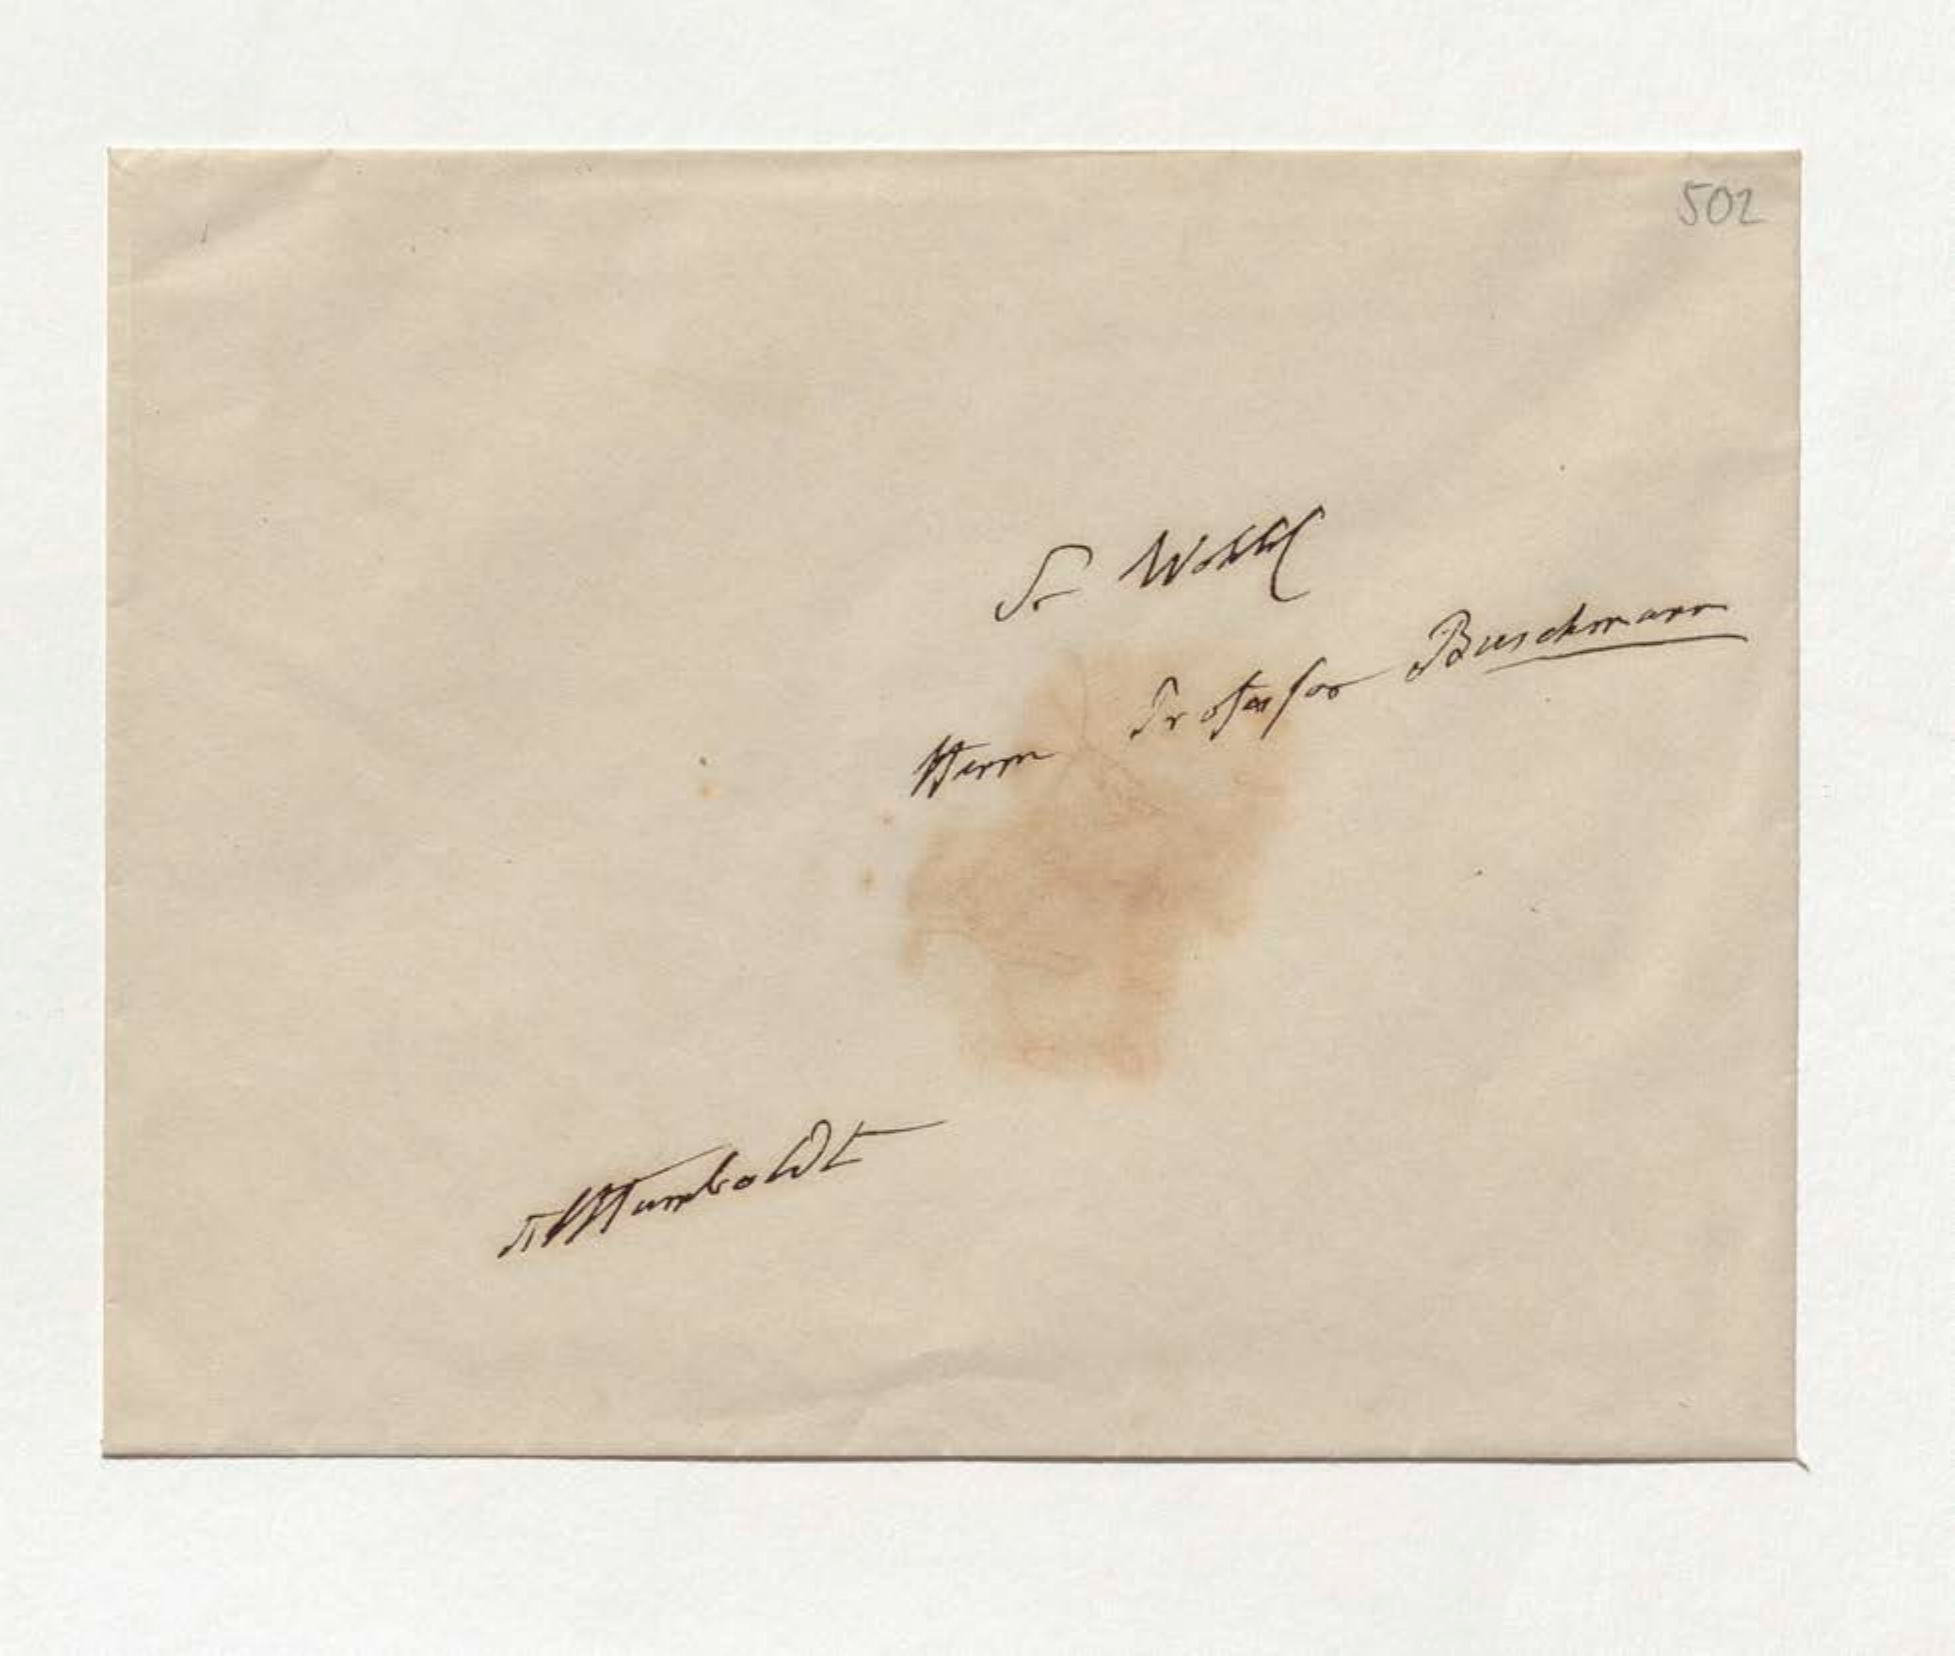 502
Sr Wohlg
Herrn Professor Buschmann
AlHumboldt